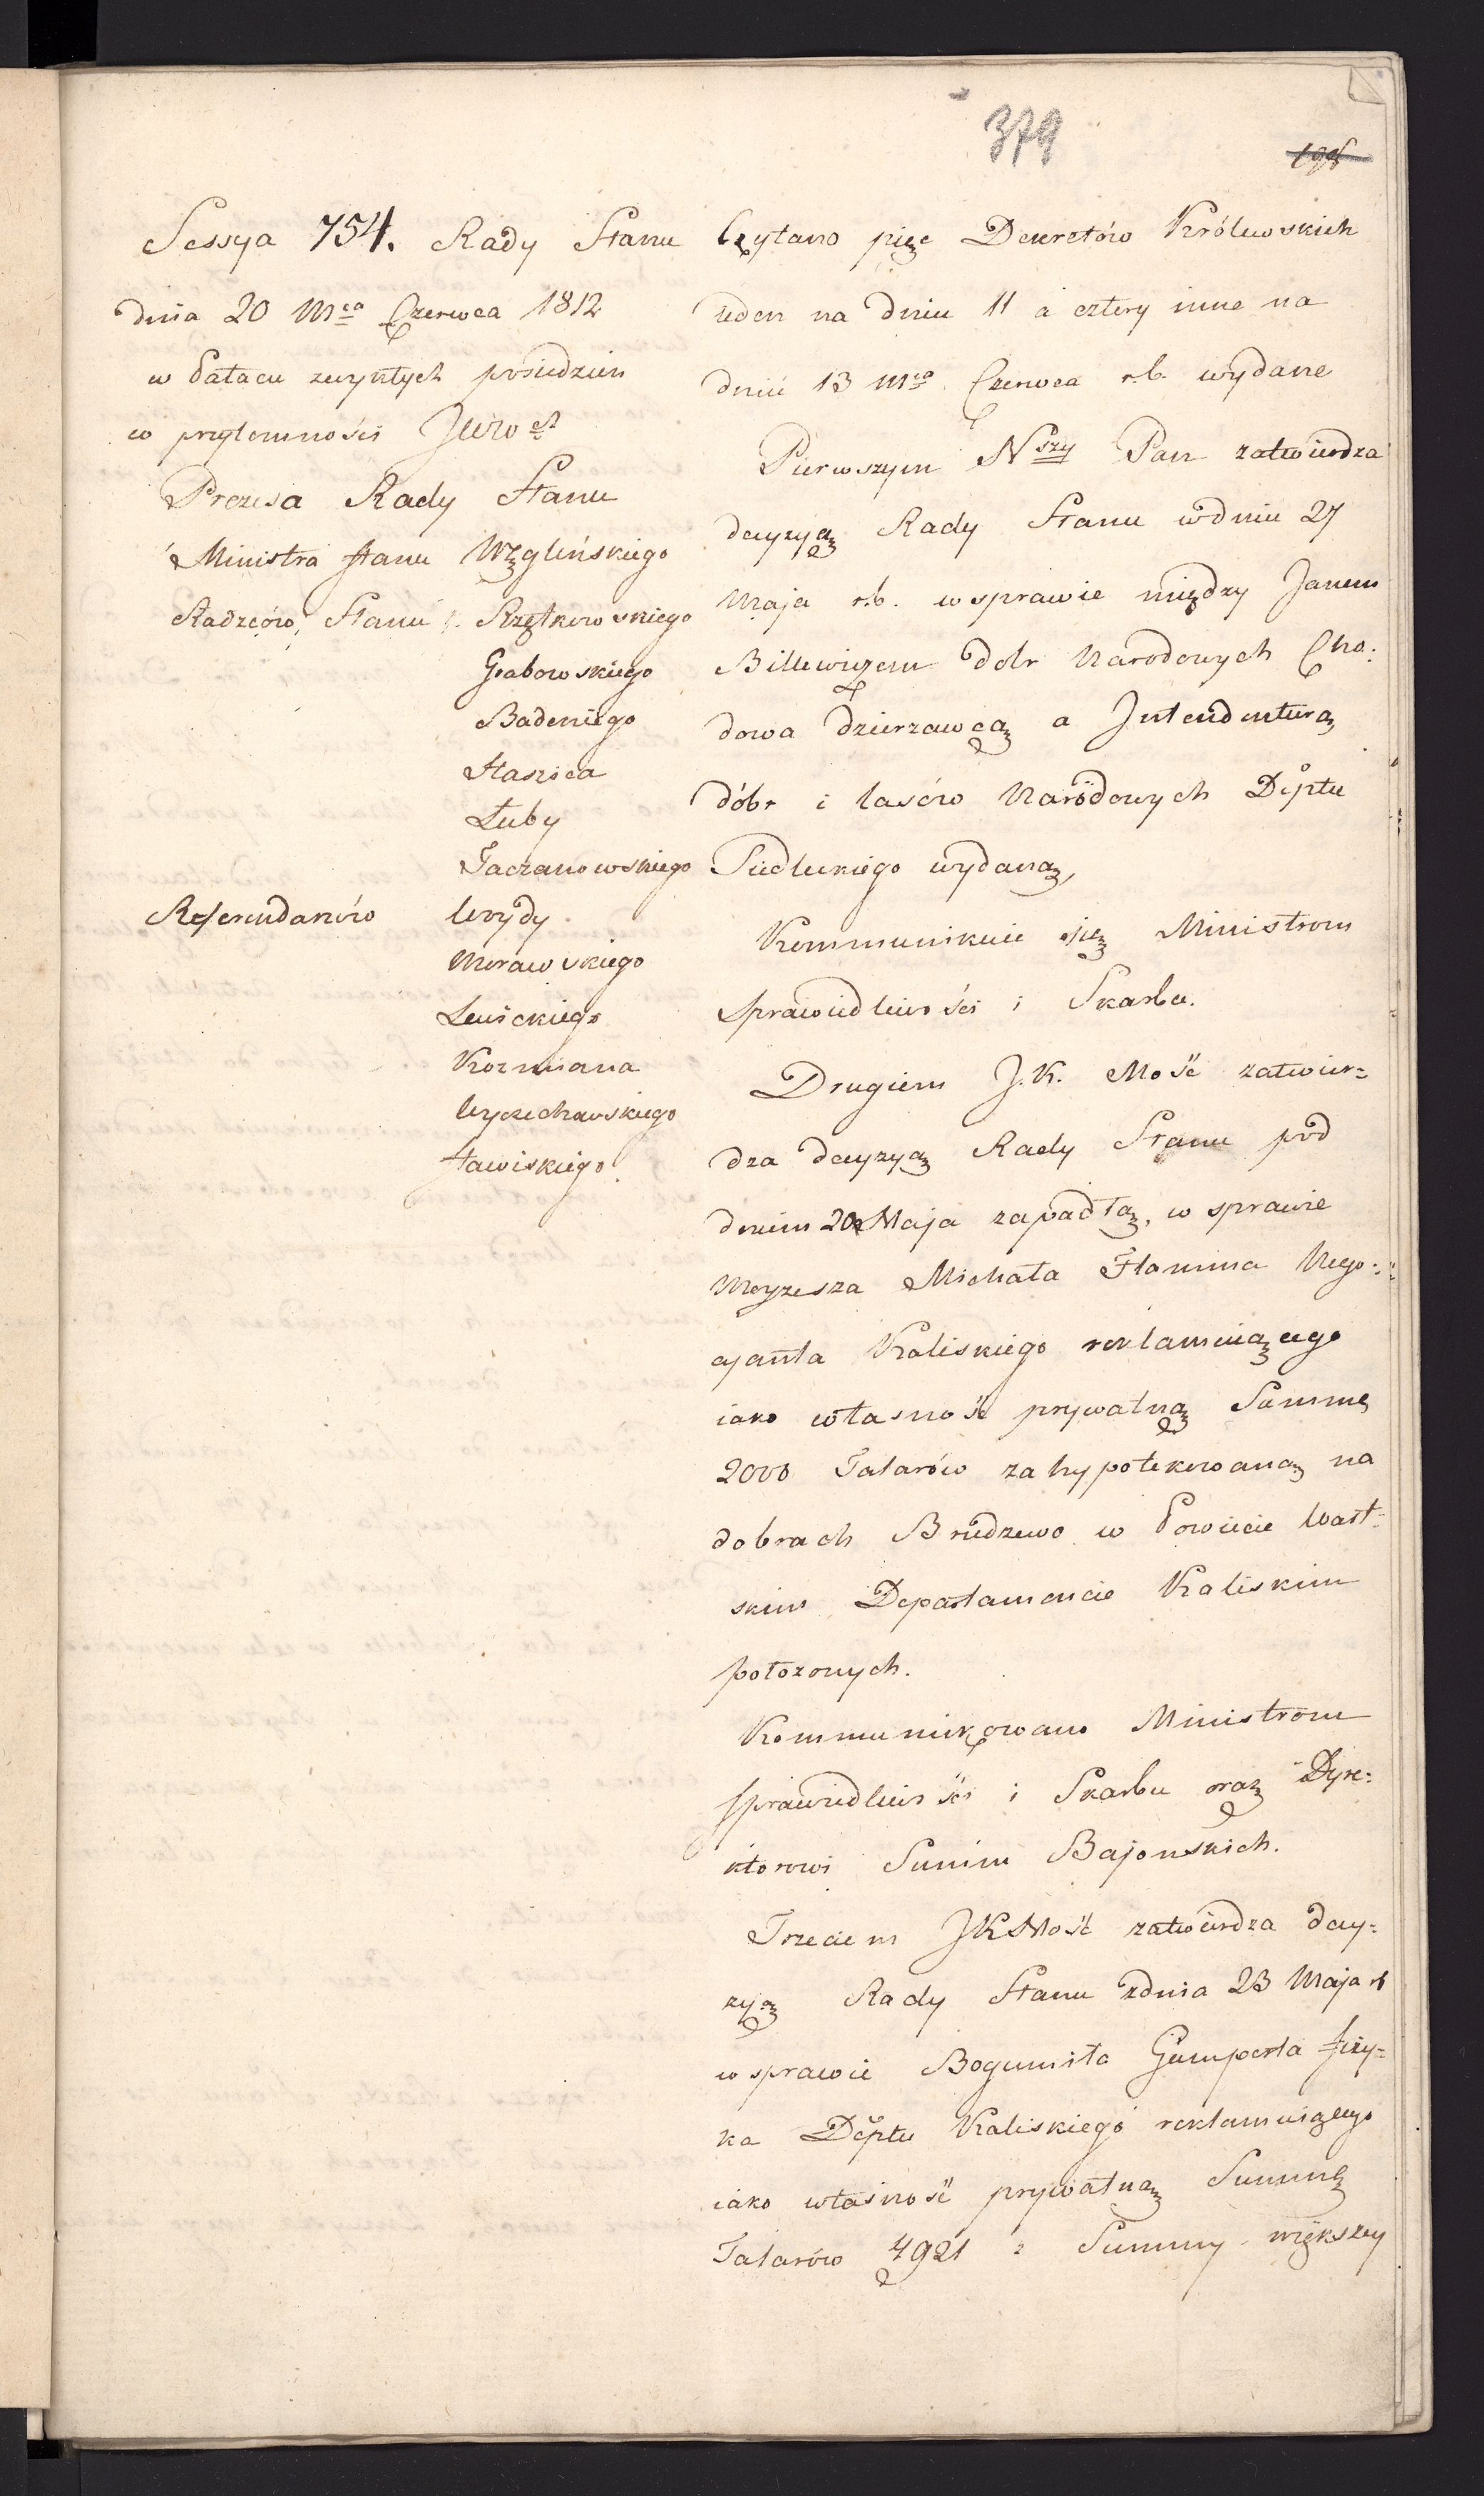 379
198
Sessya 754. Rady Stanu
dnia 20 Mca Czerwca 1812
w Pałacu zwykłych posiedzeń
w przytomności JWW
Prezesa Rady Stanu
Ministra Stanu Węglińskiego
Radzców Stanu Rzętkowskiego
Grabowskiego
Badeniego
Staszica
Łuby
Taczanowskiego
Referendarzów Woydy
Morawskiego
Lewickiego
Kozmiana
Wyczechowskiego
Stawiskiego.
Czytano pięc Dekretów Królewskich
ieden na dniu 11 a cztery inne na
dniu 13 Mca Czerwca r.b. wydane
Pierwszym Nszy Pan zatwierdza
decyzyą Rady Stanu w dniu 27
Maja r.b. w sprawie między Janem
Billewiczem dobr Narodowych Cho:
dowa dzierzawcą a Intendenturą
dóbr i lasów Narodowych Deptu
Siedleckiego wydaną,
Kommunikuie się Ministrom
Sprawiedliwości i Skarbu.
Drugiem J.K. Mość zatwier=
dza decyzyą Rady Stanu pod
dniem 20 Maja zapadłą, w sprawie
Moyzesza Michała Flamma Nego:
cyanta Kaliskiego reklamuiącego
iako własność prywatną Summę
2000 Talarów zahypotekowaną na
dobrach Brudzewo w Powiecie Wart=
skim Departamencie Kaliskim
położonych.
Kommunikowano Ministrom
Sprawiedliwości i Skarbu oraz Dyre:
ktorowi Summ Bajonskich.
Trzeciem JKMość zatwierdza decy=
zyą Rady Stanu z dnia 23 Maja rb
w sprawie Bogumiła Gumperta Fizy=
ka Deptu Kaliskiego reklamuiącego
iako własność prywatną Summę
Talarów 4921 z Summy większey